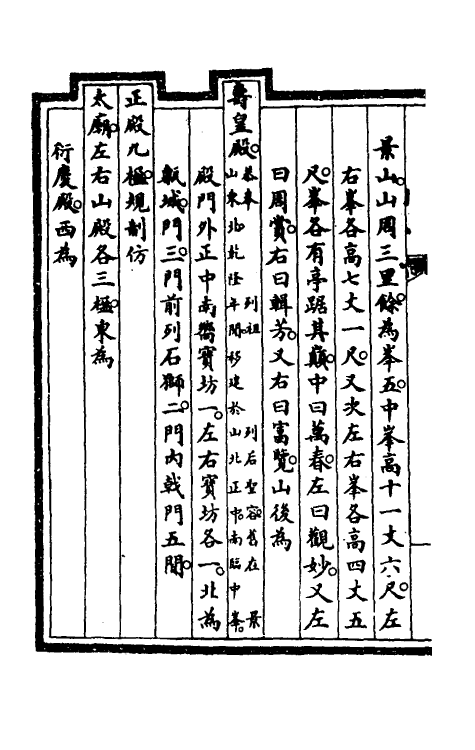 景山。山周三里餘。為峯五。中峯高十一丈六尺。左
右峯各高七丈一尺。又次左右峯各高四丈五
尺。峯各有亭踞其巔。中曰萬春。左曰觀妙。又左
曰周賞。右曰輯芳。又右曰富覽。山後為
壽皇殿。恭奉 列祖 列后聖容。舊在 景
山東北。乾隆年間移建於山北正中。南臨中峯。
殿門外正中南嚮寶坊一。左右寶坊各一。北為
甎城門三。門前列石獅二。門內戟門五間。
正殿九楹。規制仿
太廟。左右山殿各三楹。東為
衍慶殿。西為